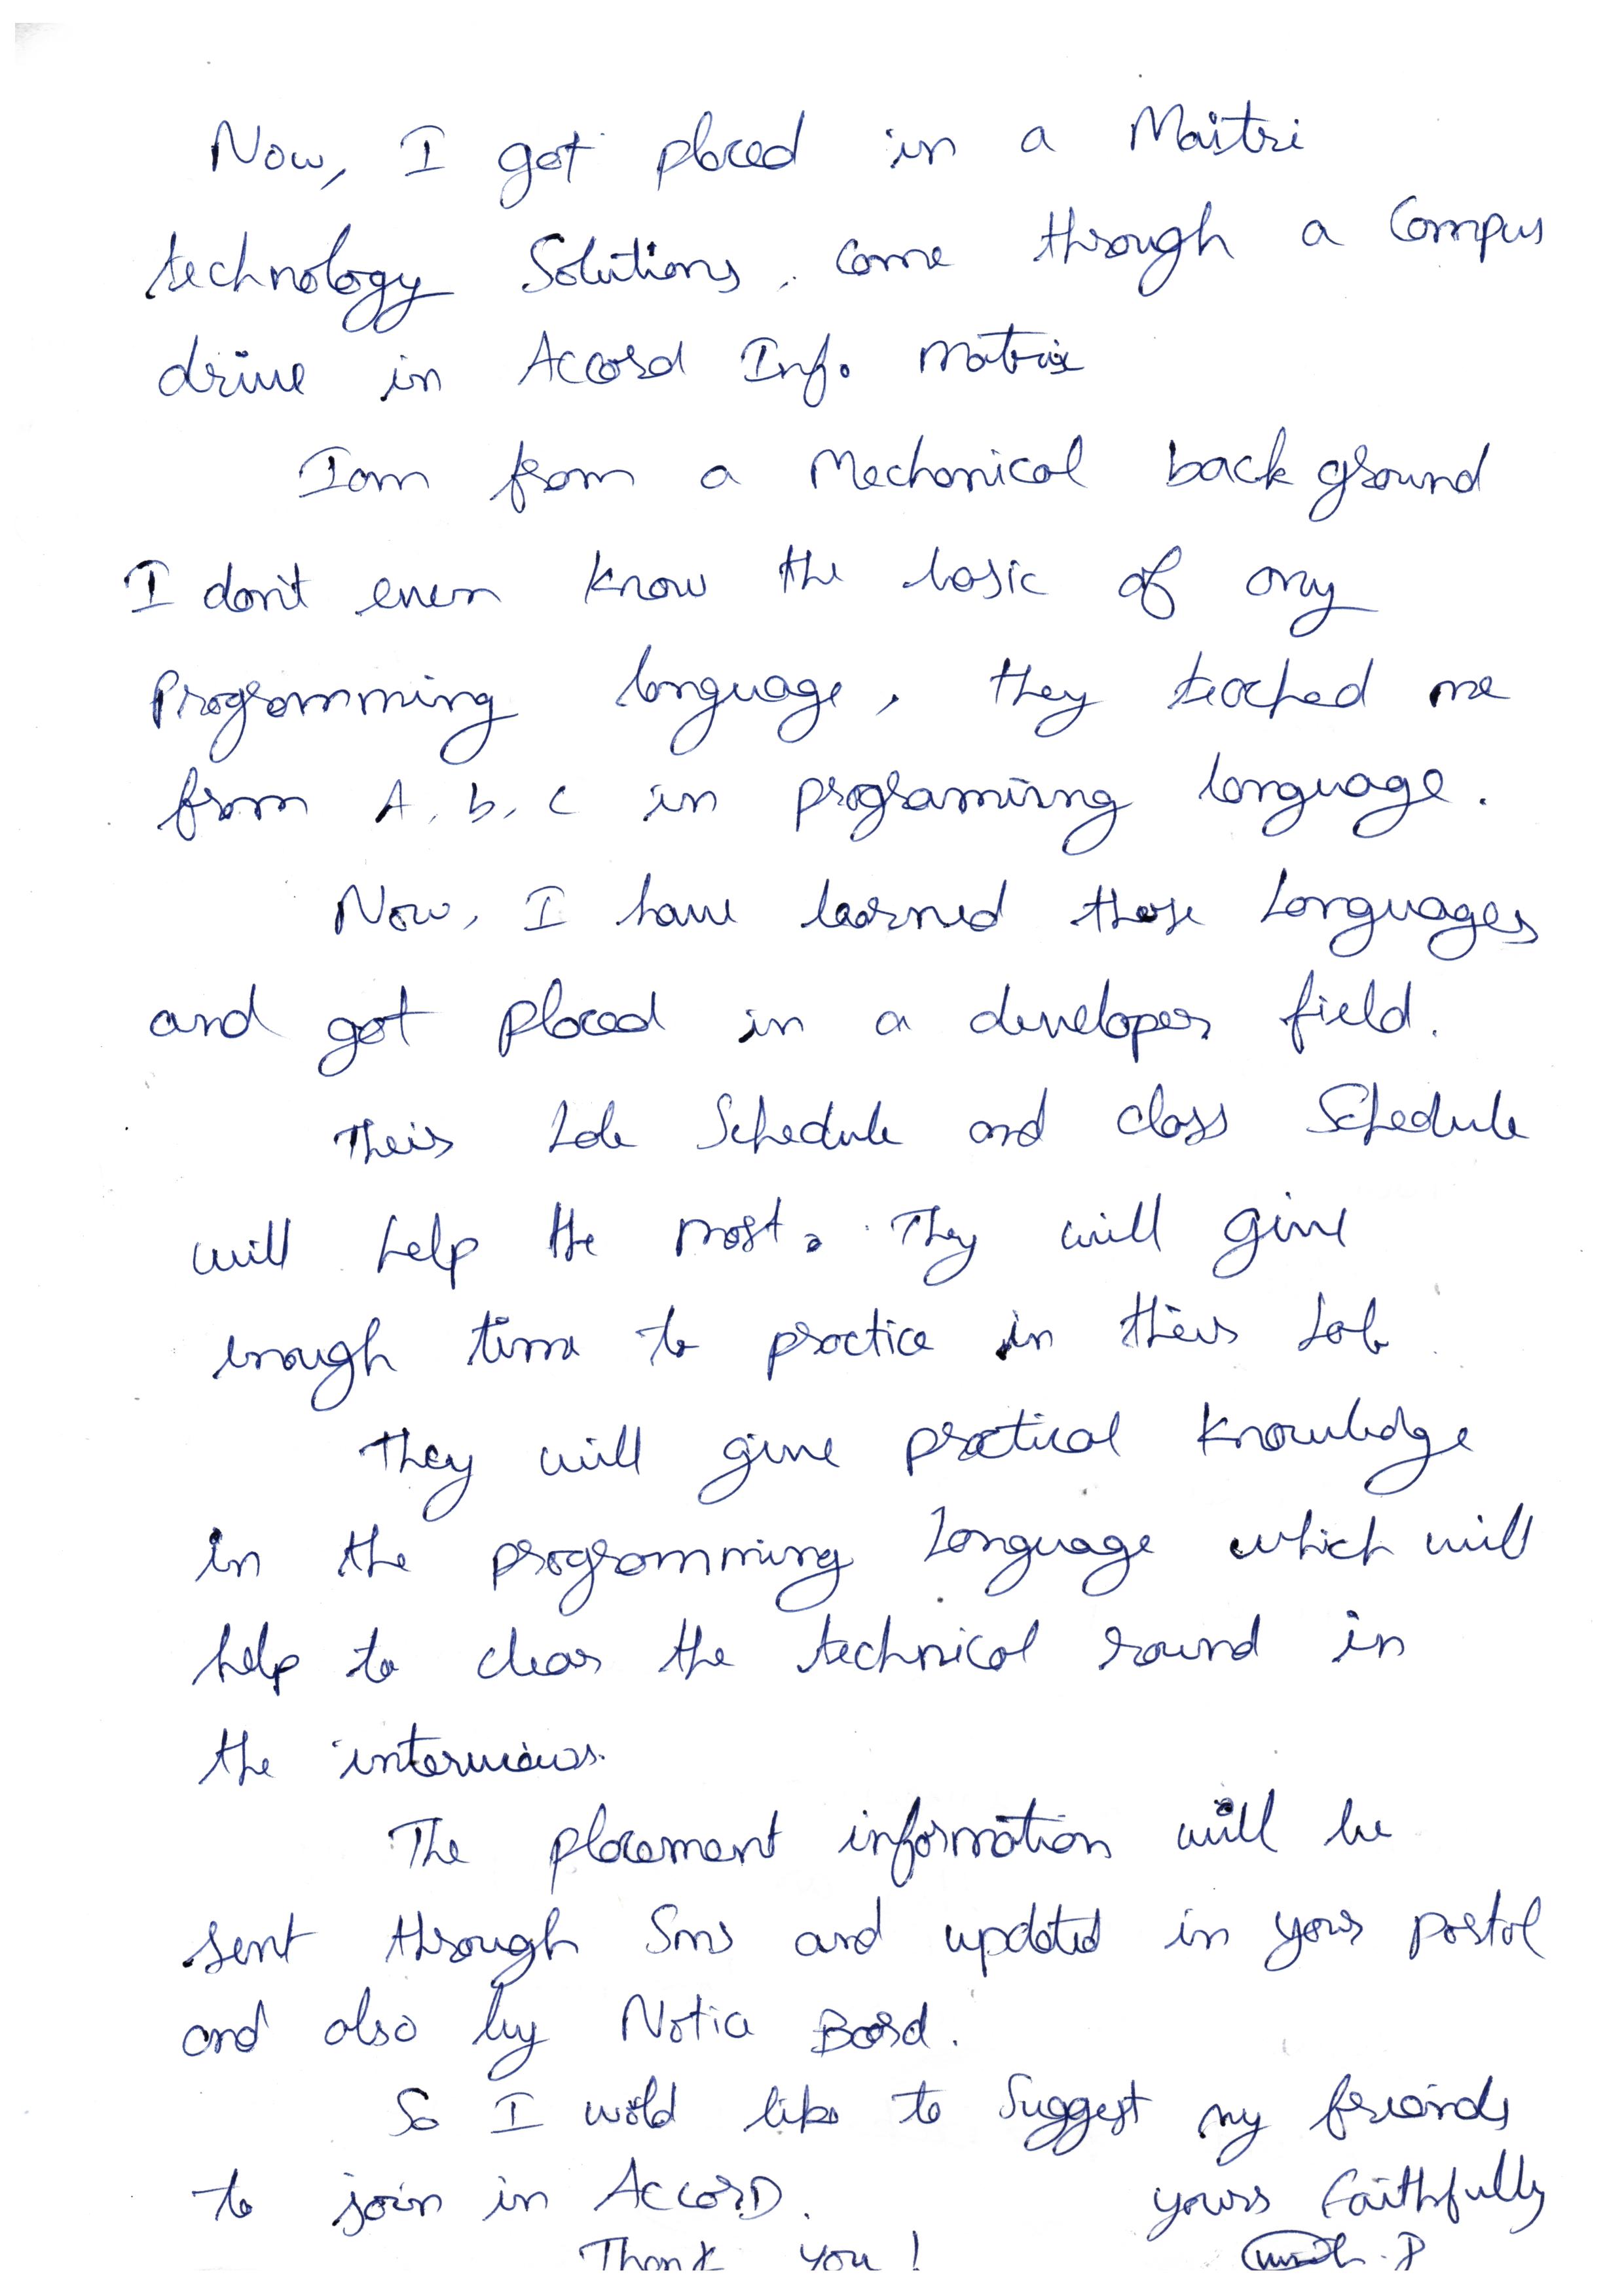 Now, I got placed in a Maitri
technology Solutions, came through a Campus
drive in Accord Info. matrix
I am from a Mechanical back ground
I don't even know the basic of any
Programming language, they teached me
from A, b, c in programing language.
Now, I have learned those Languages
and got placed in a developer field.
Their Lab Schedule and class Schedule
will help the most. They will give
enough time to practice in their Lab
They will give practical knowledge
in the programming Language which will
help to clear the technical round in
the interviews.
The placement information will be
sent through Sms and updated in your portal
and also by Notice Board.
So I wold like to Suggest my friends
to join in AccorD. yours faithfully
Thank you!